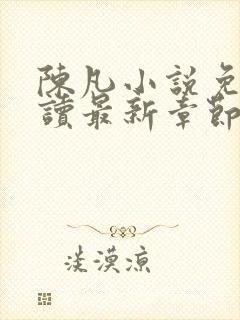 陳凡小說免
讀最新章節
淡漠涼